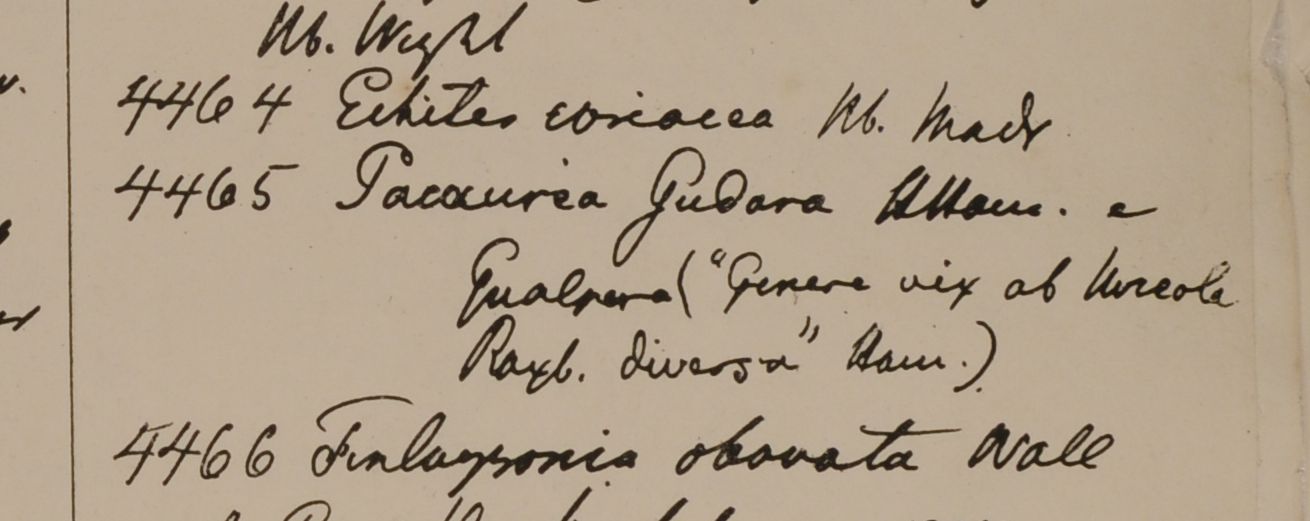 Hb. Wight
4464 Echites coriacea Hb. Madr
4465 Pacouria Gudara HHam. e
Gualpara ("Genere vix ab Urceola
Roxb. diversa" Ham.)
4466 Finlaysonia obovata Wall